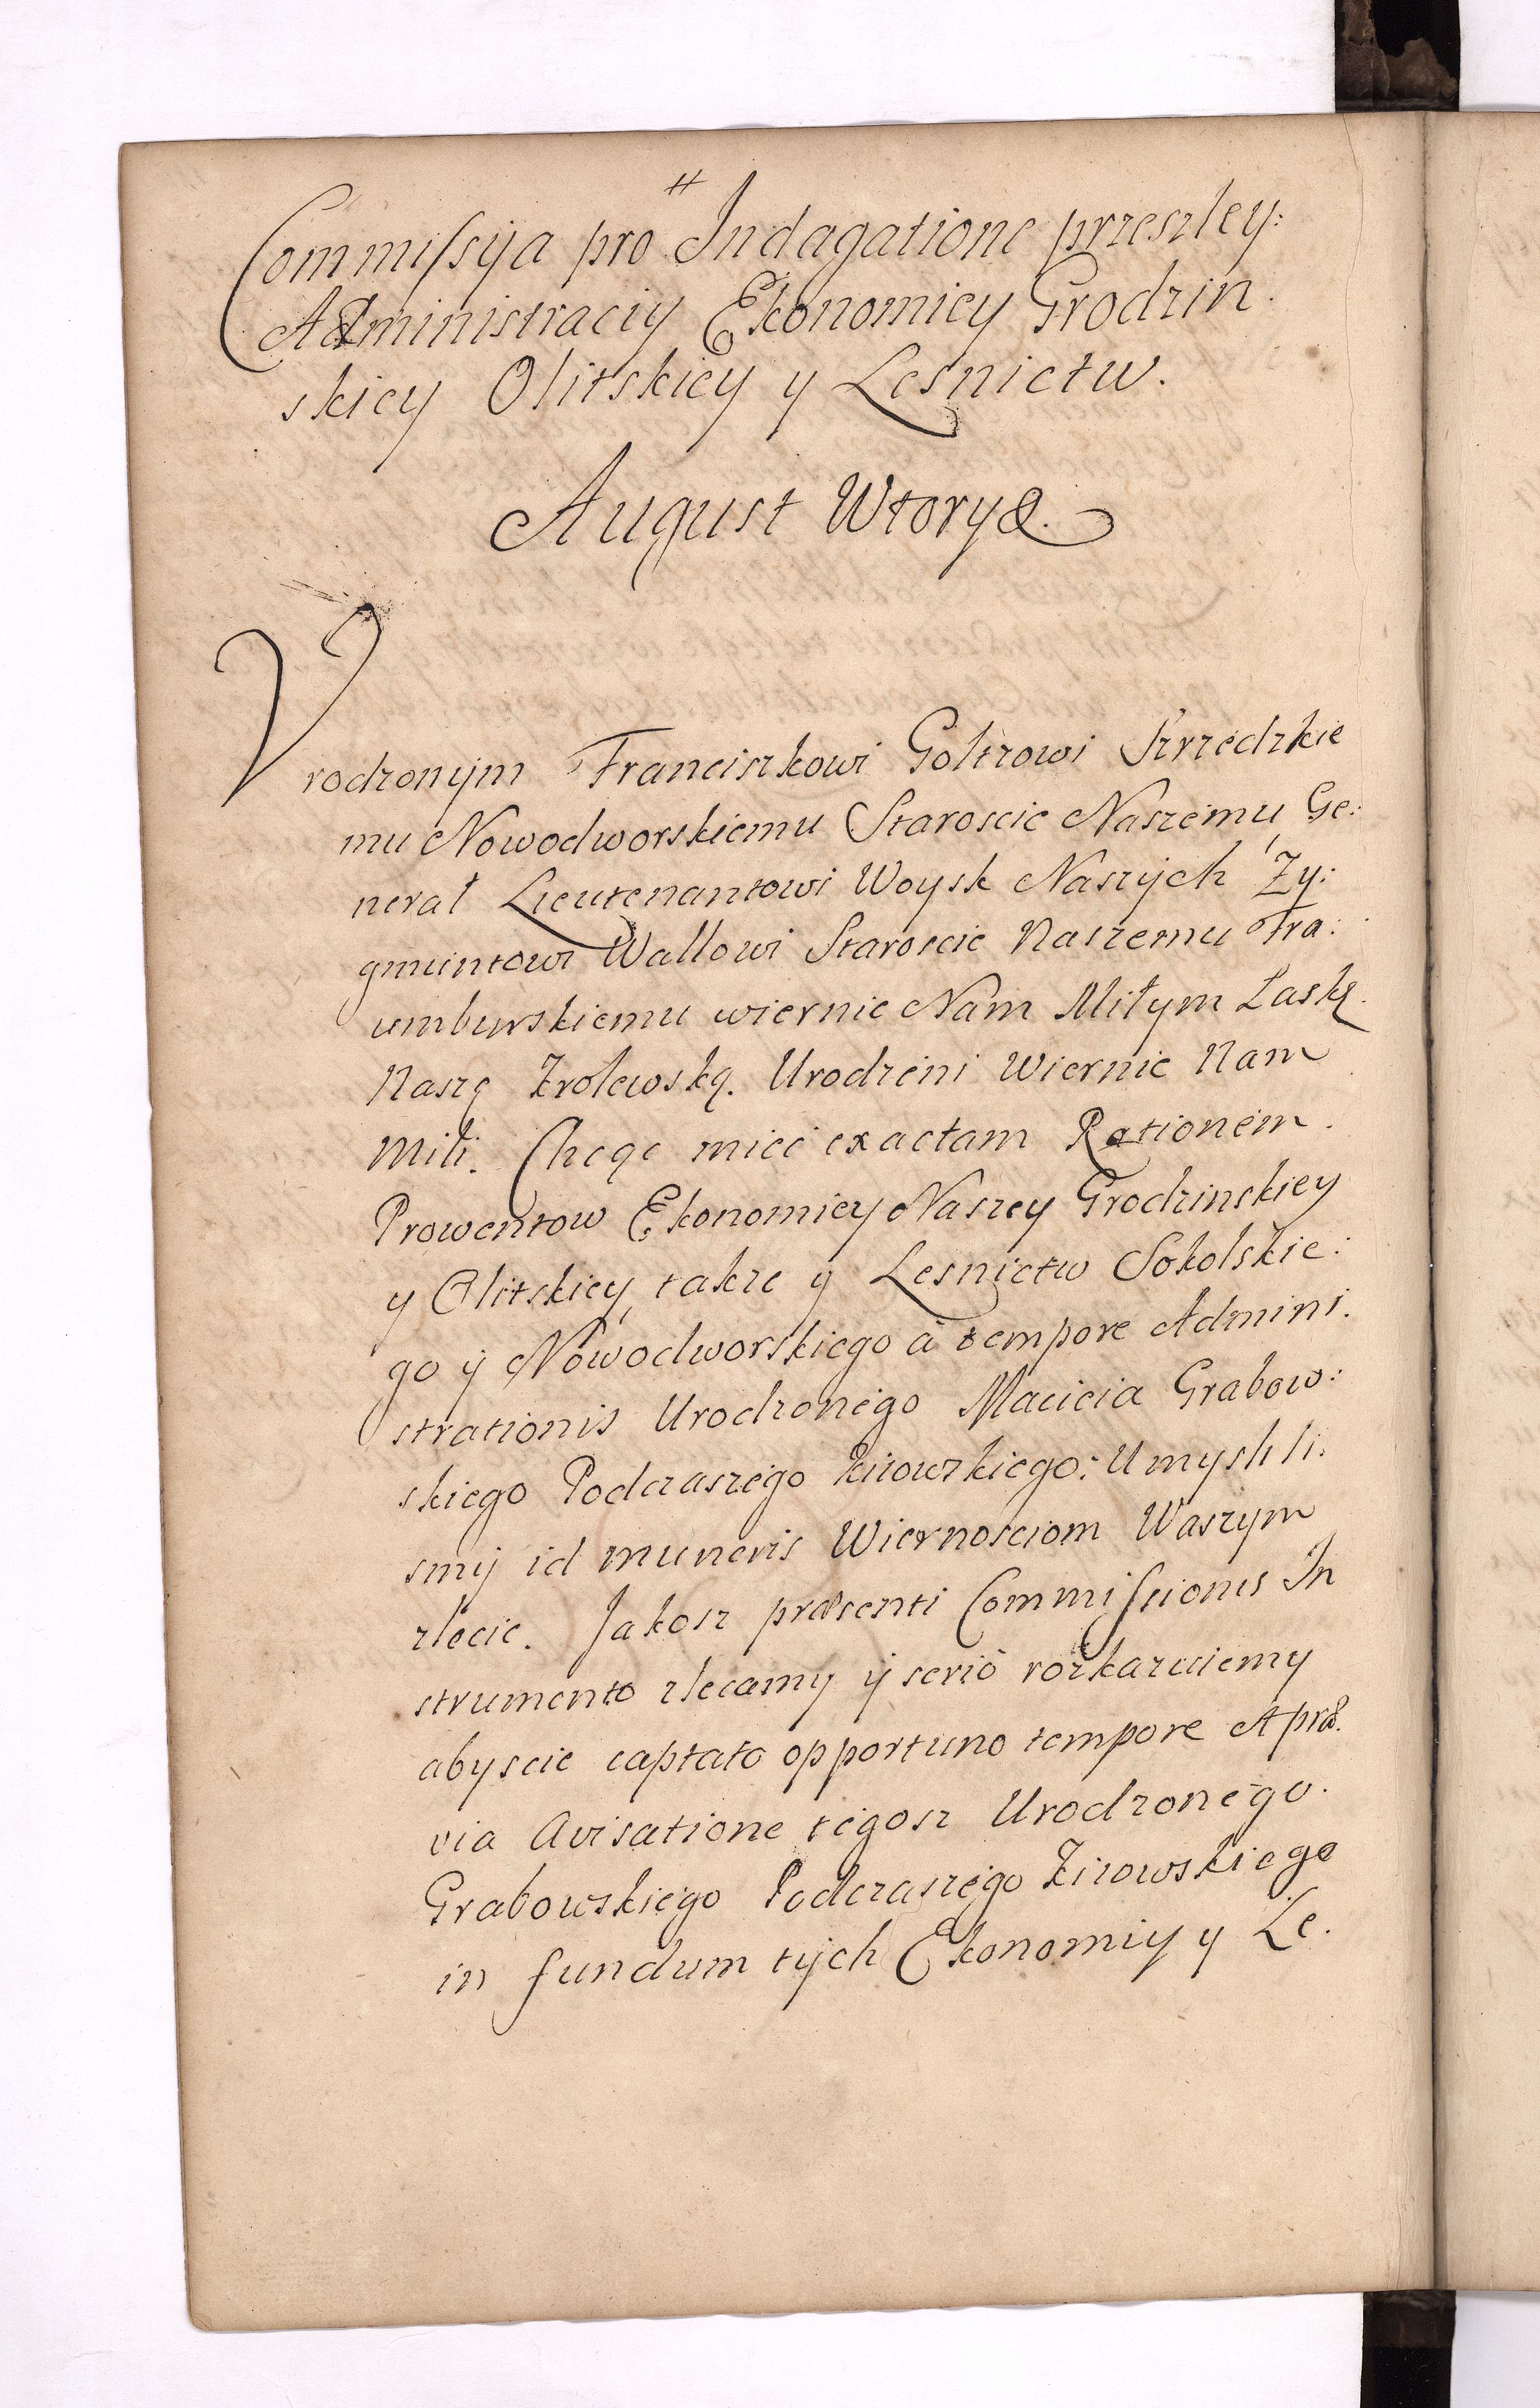 #
Commissyja pro Indagatione przeszley:
Administraciy Ekonomiey Grodzin
skiey Olitskiey y Lesnictw.
August Wtory &.
Vrodzonym Franciszkowi Goltzowi Szrzedzkie
mu Nowodworskiemu Staroscie Naszemu Ge:
nerał Lieutenantowi Woysk Naszych Zy:
gmuntowi Wallowi Staroscie Naszemu Tra:
umburskiemu wiernie Nam Miłym Laskę
Naszę Krolewskę. Urodzeni Wiernie Nam
Mili. Chcąc mieć exactam Rationem
Prowentow Ekonomiey Naszey Grodzinskiey
y Olitskiey, takze y Lesnictw Sokolskie:
go y Nowodworskiego à tempore Admini:
strationis Urodzonego Macieia Grabow:
skiego Podczaszego Kiiowskiego: Umyslili:
smy id muneris Wiernosciom Waszym
zlecic. Jakosz præsenti Commissionis In
strumento zlecamy y serio rozkazuiemy
abyscie captato opportuno tempore A præ:
via Avisatione tegosz Urodzonego
Grabowskiego Podczaszego Kiiowskiego
in fundum tych Ekonomiy y Le: